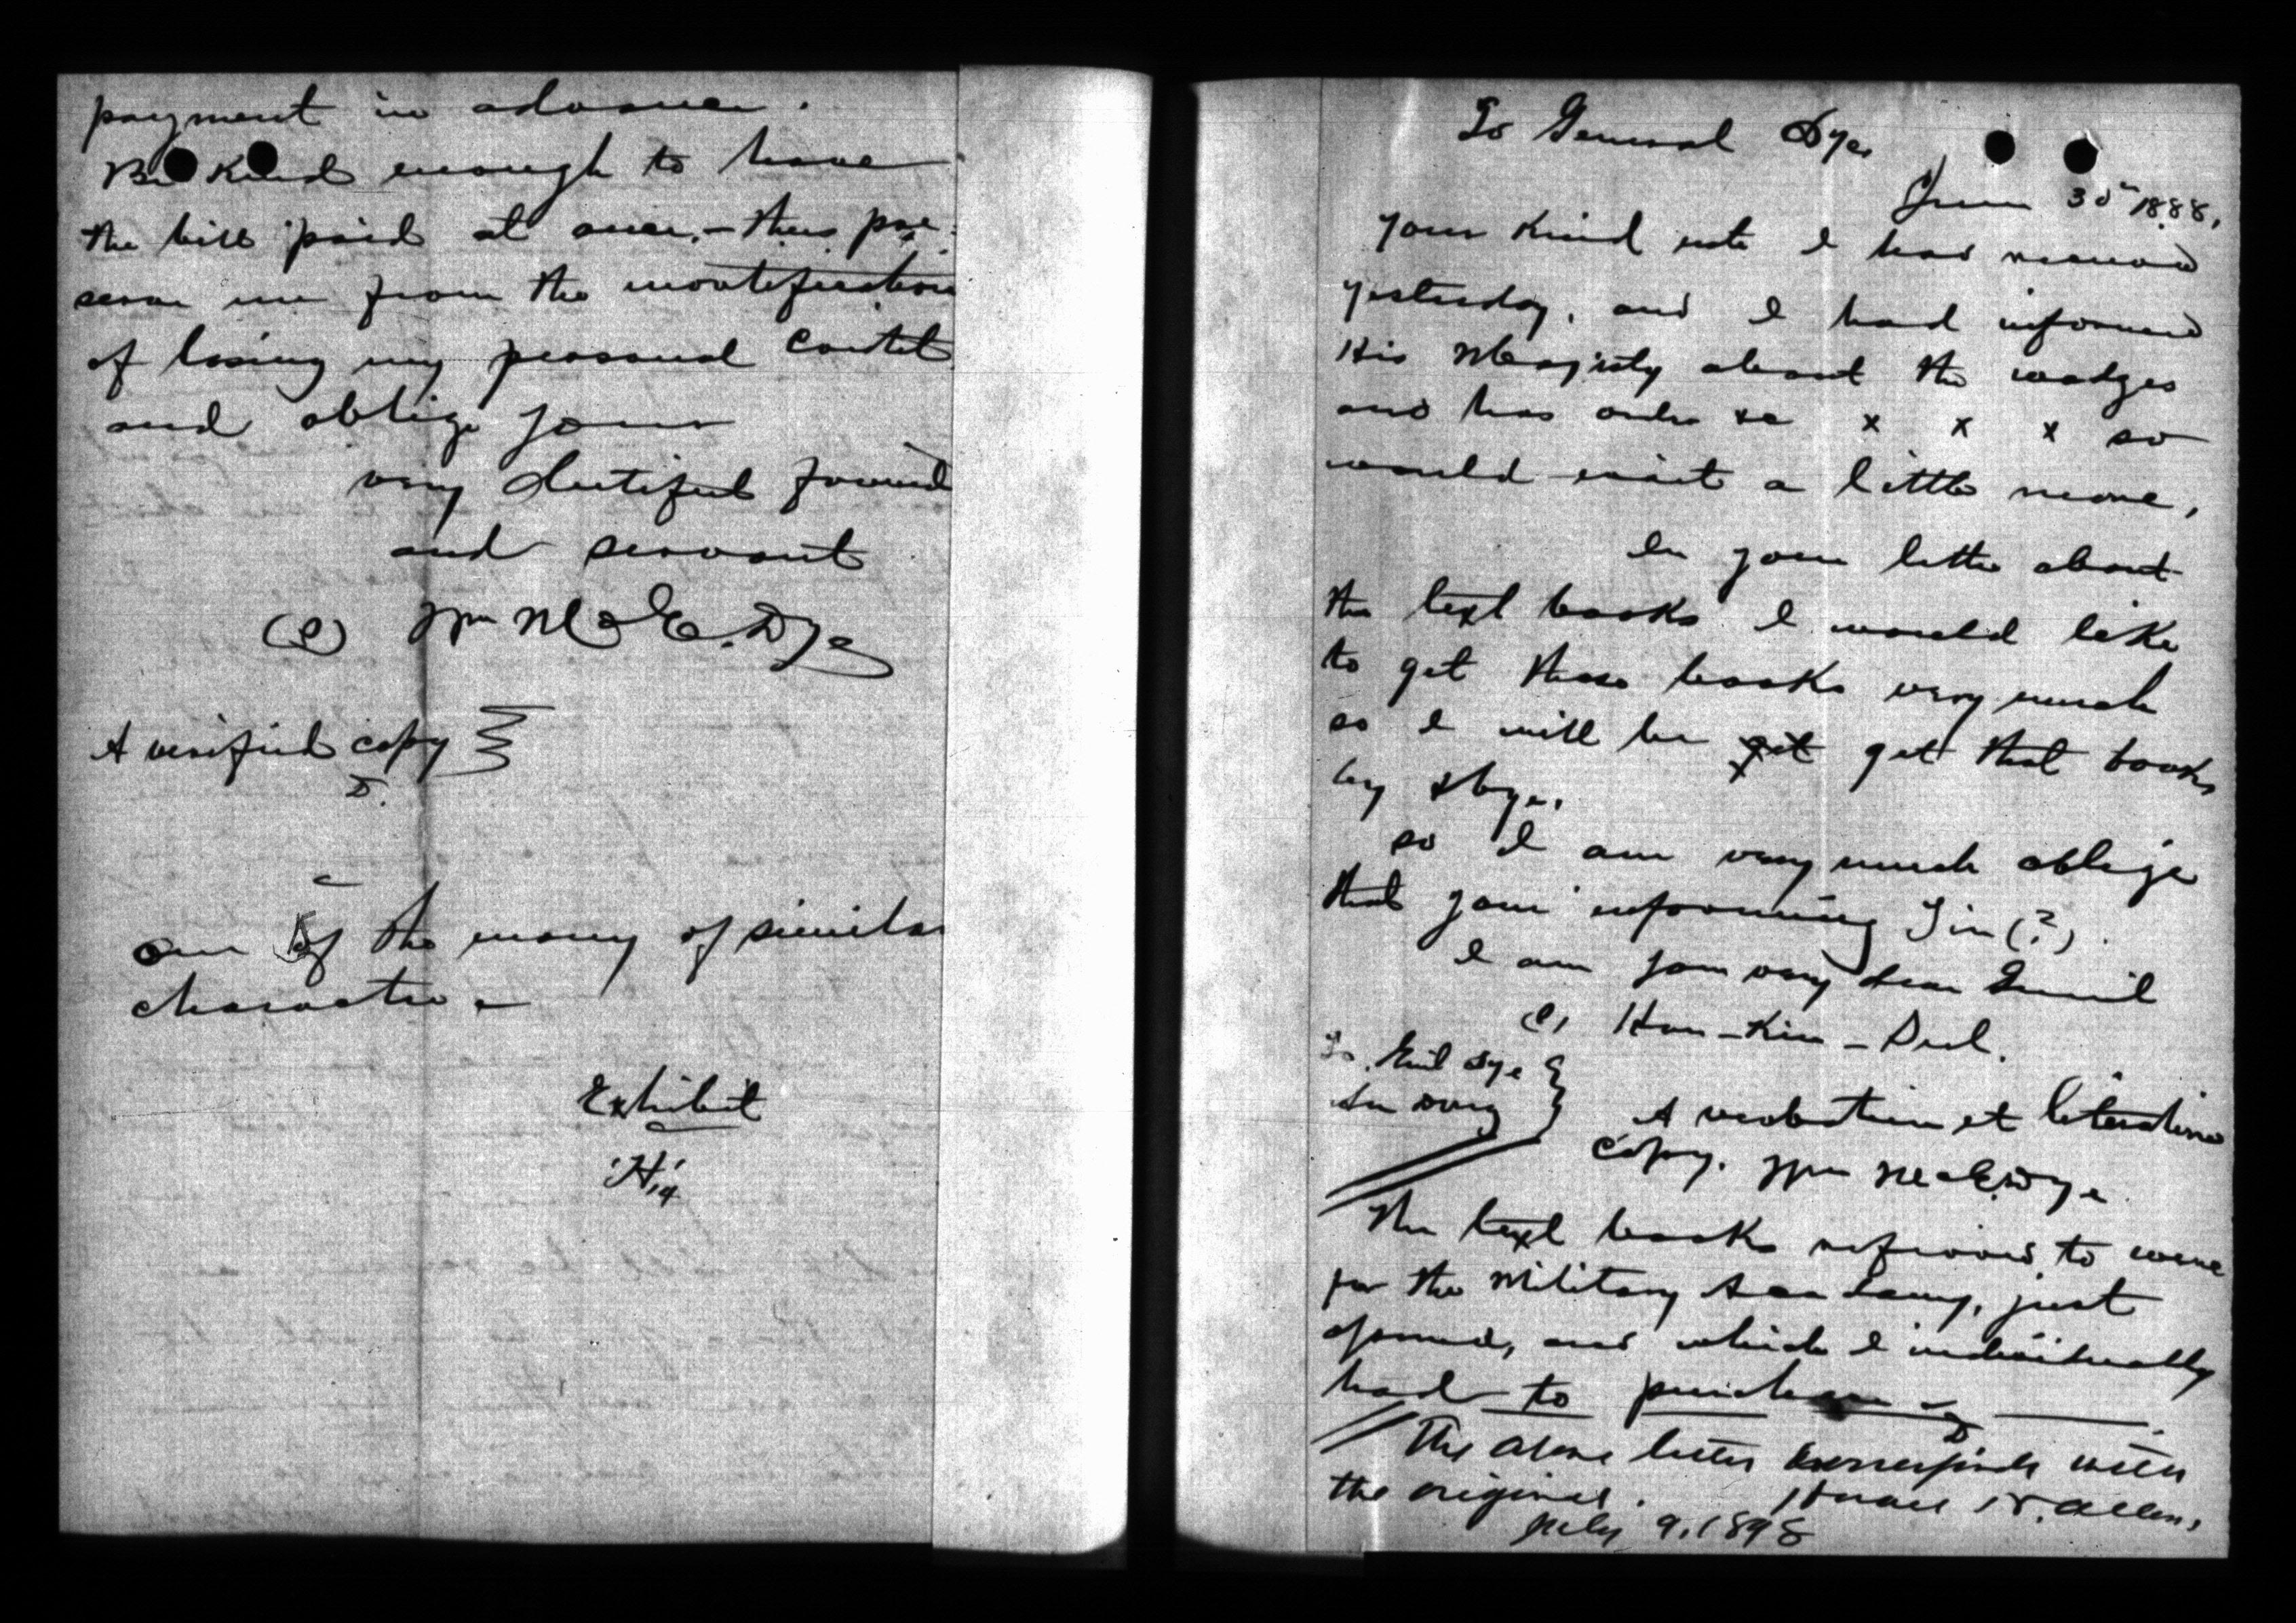 payment in advance.
Be kind enough to have
the bill paid at once,- thus pre-
serve me from the mortification
of losing my personal credit
and oblige your
very dutiful friend
and servant
(S) Wm McE. Dye
A verified copy
D.
One of the many of similar
character -
Exhibit
"H,4
To General Dye,
June 30" 1888,
Your kind note I had received
yesterday, and I had informed
His Majisty about the wadges
and has order &c x x x so
would wait a little more,
In your letter about
the text books I would like
to get those books very much
so I will be get get that books
by &bye,
so I am very much oblige
that your informing Sir (?).
I am your very dear Genril
(S) Han-Kin-Dul.
To. Genl Dye
A verbatim et literatim
copy. Wm McE. Dye
The text books referred to were
for the Military Academy, just
opened, and which I individually
had to purchase -
D
The above letter corresponds with
the original. Horace N. Allen,
July 9, 1898